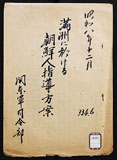 昭和八年十二月
満洲に於ける
朝鮮人指導方案
関東軍司令部